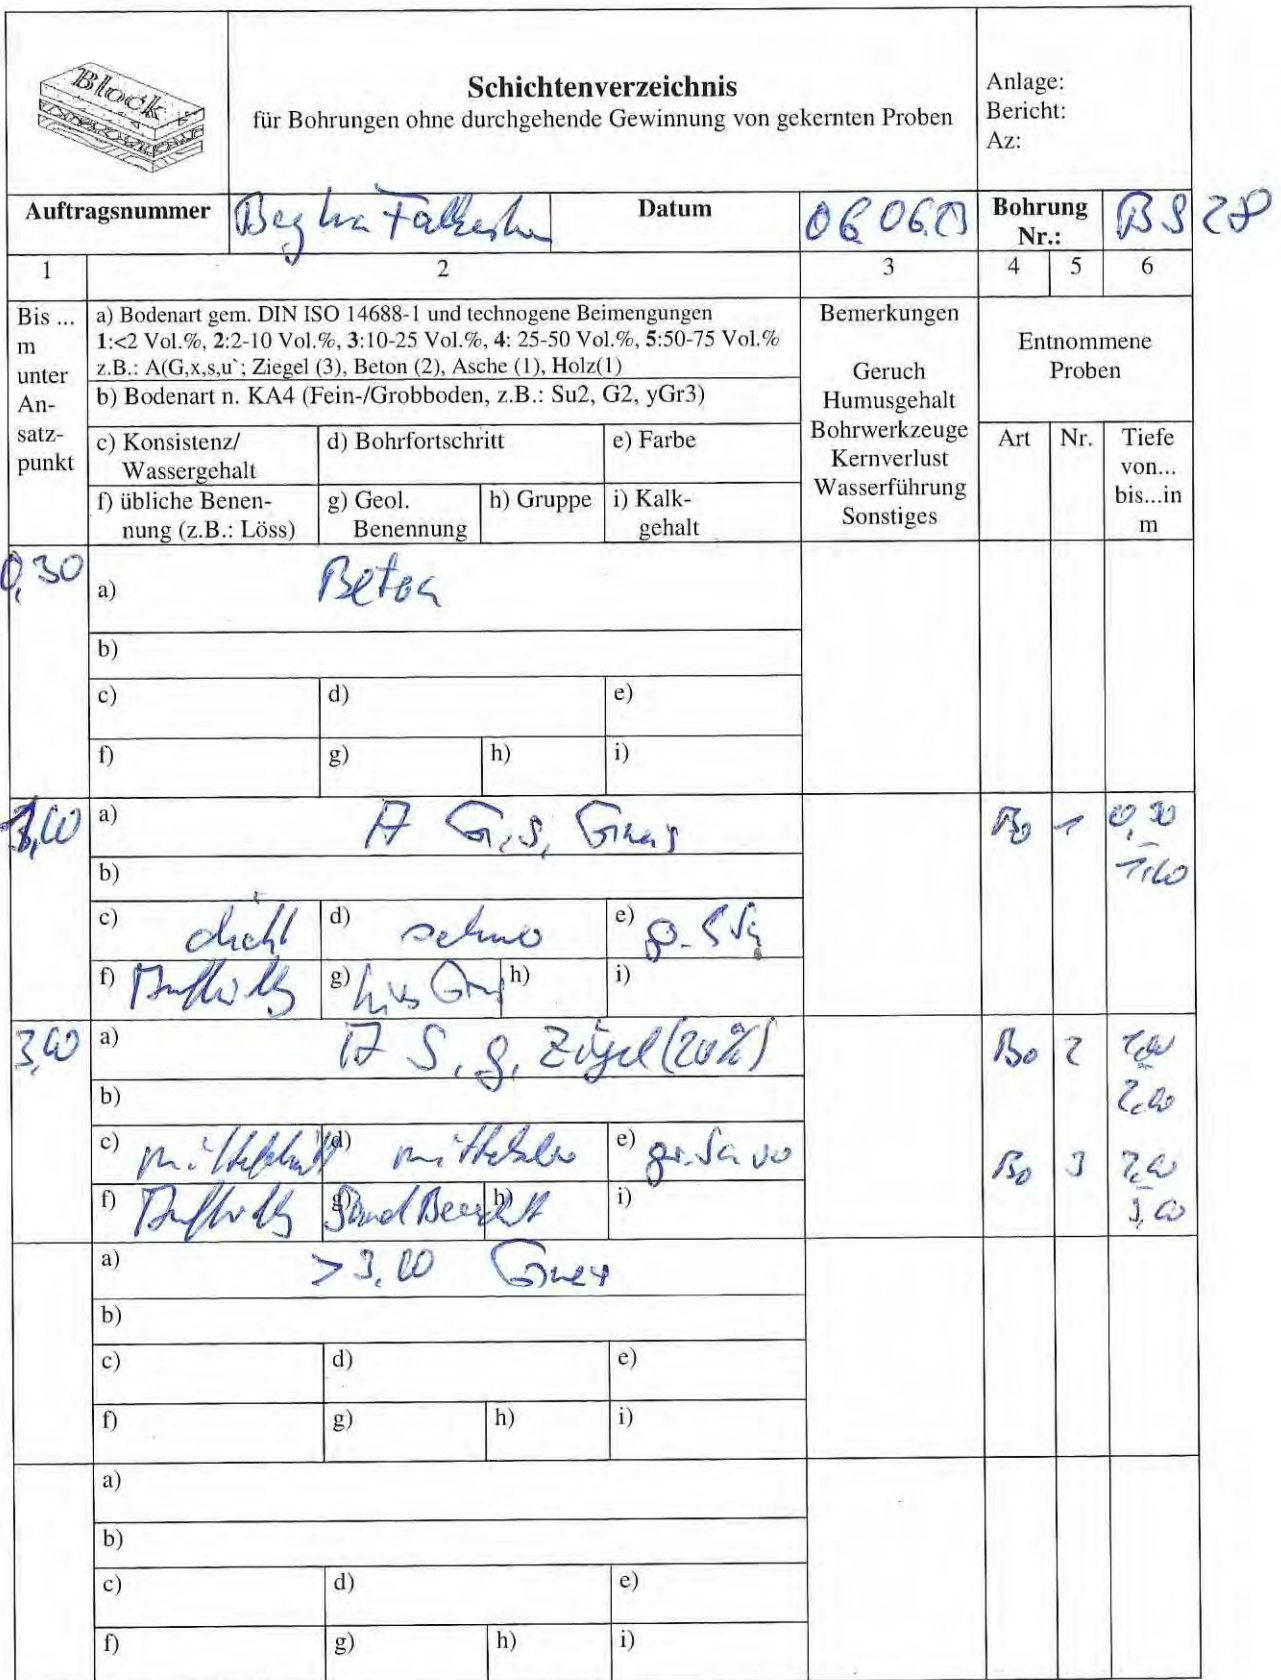 Block
Schichtenverzeichnis
für Bohrungen ohne durchgehende Gewinnung von gekernten Proben
Anlage:
Bericht:
Az:
Auftragsnummer
Datum
06.06.
Bohrung Nr.:
BS 28
1 2 3 4 5 6
Bis ... m unter An- satz- punkt
a) Bodenart gem. DIN ISO 14688-1 und technogene Beimengungen
1:<2 Vol.%, 2:2-10 Vol.%, 3:10-25 Vol.%, 4: 25-50 Vol.%, 5:50-75 Vol.%
z.B.: A(G,x,s,u`; Ziegel (3), Beton (2), Asche (1), Holz(1)
b) Bodenart n. KA4 (Fein-/Grobboden, z.B.: Su2, G2, yGr3)
c) Konsistenz/ Wassergehalt
d) Bohrfortschritt
e) Farbe
f) übliche Benen- nung (z.B.: Löss)
g) Geol. Benennung
h) Gruppe
i) Kalk- gehalt
Bemerkungen
Geruch
Humusgehalt
Bohrwerkzeuge
Kernverlust
Wasserführung
Sonstiges
Entnommene Proben
Art
Nr.
Tiefe von... bis...in m
0,30
a) Beton
b)
c) d) e)
f) g) h) i)
1,00
a) A G, s,
Bo 1 0,30 - 1,00
b)
c) dicht d) schwe e)
f) g) h) i)
3,00
a) A S, g, Ziegel (20%)
Bo 2 1,00 - 2,00
b)
c) mitteldicht d) mittelschw e)
Bo 3 2,00 - 3,00
f) g) h) i)
a) >3,00
b)
c) d) e)
f) g) h) i)
a)
b)
c) d) e)
f) g) h) i)